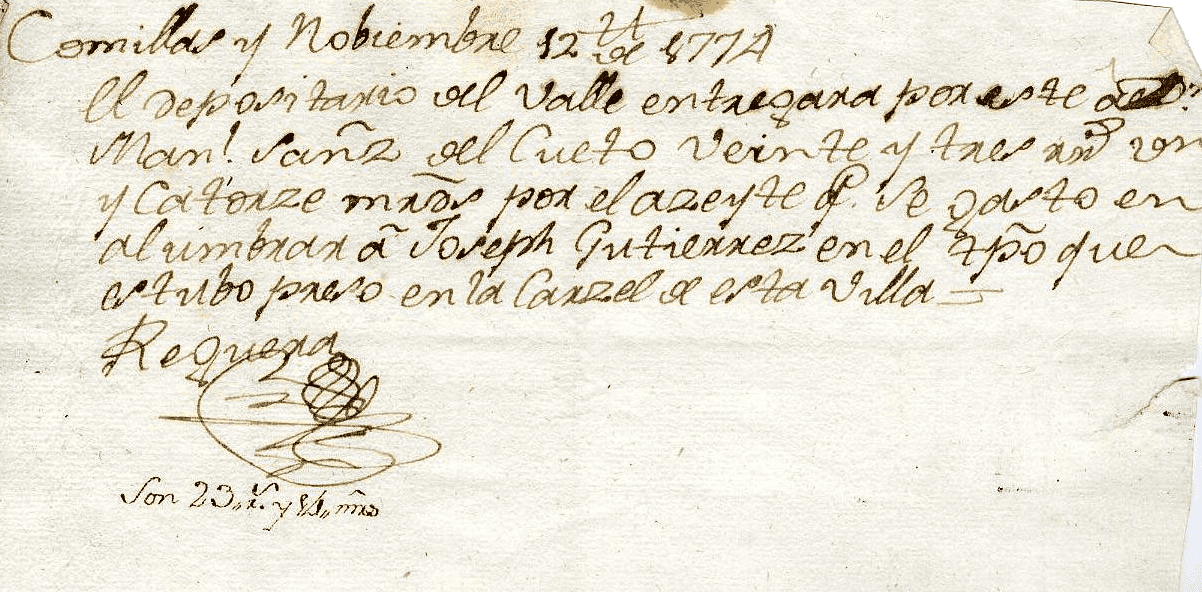 Comillas y Nobiembre 12 de 1774
El depositario del Valle entregara por este a Dn.
Manl. Sañz del Cueto Veinte y tres rrs von
y Catorze mrõs por el azeyte q. Se gasto en
alumbrar a Joseph Gutierrez en el tpõ que
estubo preso en la Carzel de esta Villa =
Reguera
Son 23,,rs. y 14,,mrs